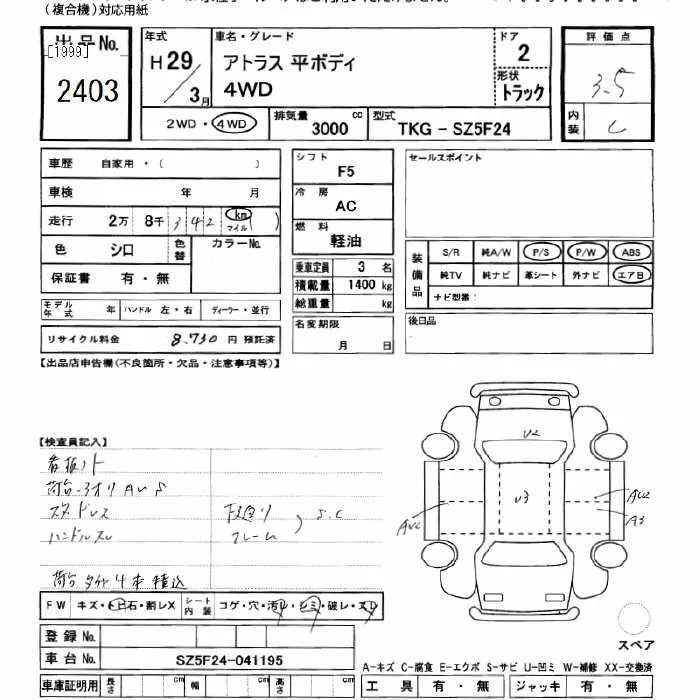 (複合機)対応用紙
出品No.
[1999]
2403
年式
H29/3月
車名・グレード
アトラス 平ボディ
4WD
ドア
2
形状
トラック
評価点
3.5
内装
C
2WD・4WD
排気量
3000 cc
型式
TKG - SZ5F24
車歴 自家用・( )
車検 年 月
走行 2万 8千 3 4 2 km マイル ( )
色 シロ 色替 カラーNo.
保証書 有・無
モデル年式 年 ハンドル 左・右 ディーラー・並行
リサイクル料金 8,730 円 預託済
シフト
F5
冷房
AC
燃料
軽油
乗車定員 3 名
積載量 1400 kg
総重量 kg
名変期限
月 日
セールスポイント
装備品
S/R 純A/W P/S P/W ABS
純TV 純ナビ 革シート 外ナビ エアB
ナビ型番:
後日品
【出品店申告欄(不良箇所・欠品・注意事項等)】
【検査員記入】
看板ノト
荷台・3オリ AU S
スタドレス
ハンドルスレ
下廻り
フレーム
S.C
荷台タイヤ4本積込
U2
U3
AU2
A3
FW キズ・トビ石・割レX シート内装 コゲ・穴・汚レ・シミ・破レ・スレ
登録No.
車台No. SZ5F24-041195
車庫証明用 長さ cm 幅 cm 高さ cm
スペア
A-キズ C-腐食 E-エクボ S-サビ U-凹ミ W-補修 XX-交換済
工具 有・無 ジャッキ 有・無